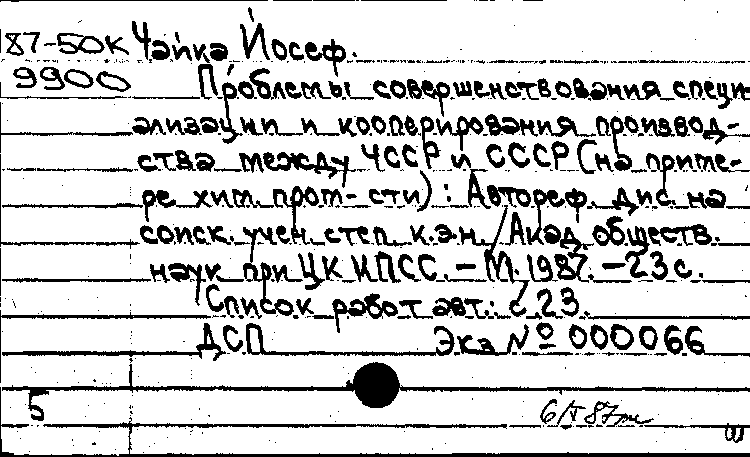 87-50к Чайка Йосеф.
9900 Проблемы совершенствования специ-
ализации и кооперирования производ-
ства между ЧССР и СССР (на приме-
ре хим. пром-сти) : Автореф. дис. на
соиск. учен. степ. к.э.н. / Акад. обществ.
наук при ЦК КПСС. - М. 1987. - 23 с.
Список работ авт.: с 23.
ДСП Экз № 000066
5